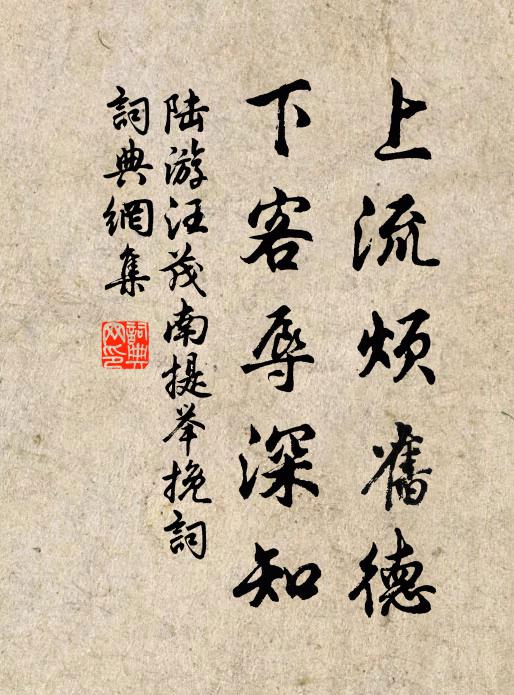 上流烦舊德
下客辱深知
陆游汪茂南提举挽詞
詞典網集
詞典网印